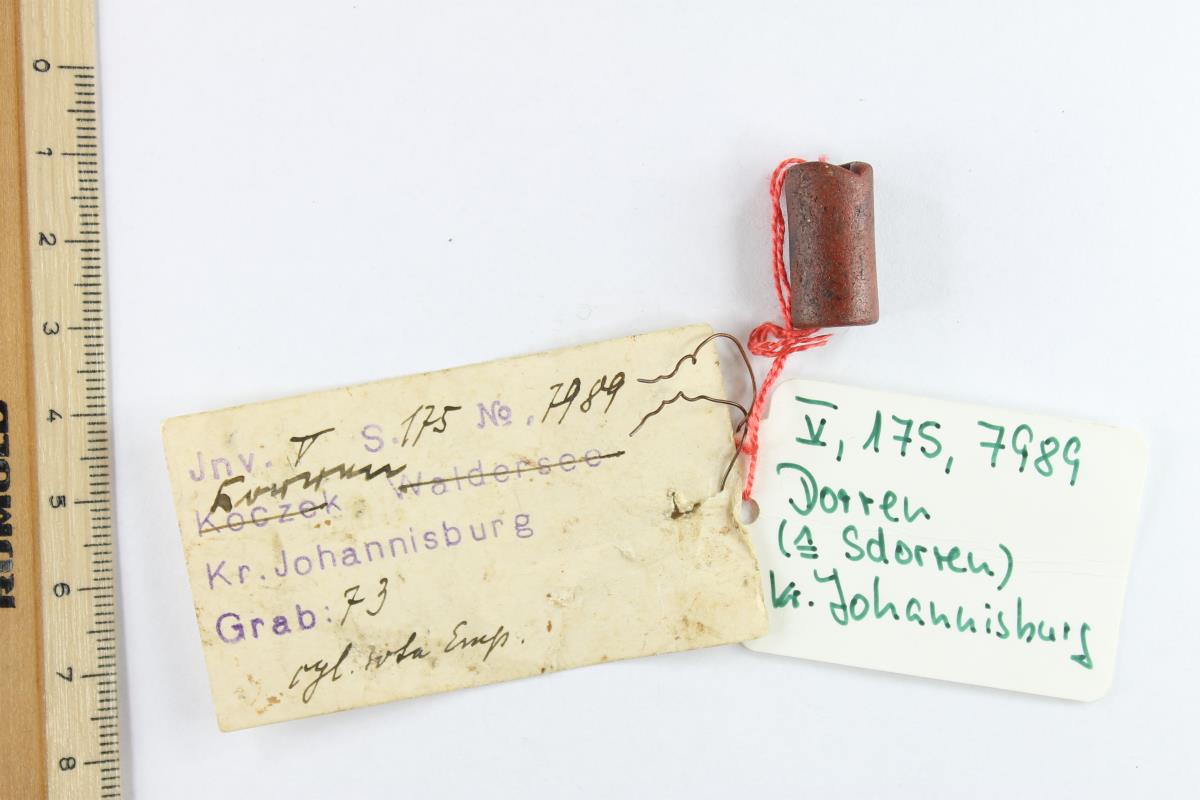 Jnv. V S. 175 No. 7989
Dorren
Koczek Waldersee
Kr. Johannisburg
Grab: 73
cyl. rote Emp.
V, 175, 7989
Dorren
(≙ Sdorren)
Kr. Johannisburg
0
1
2
3
4
5
6
7
8